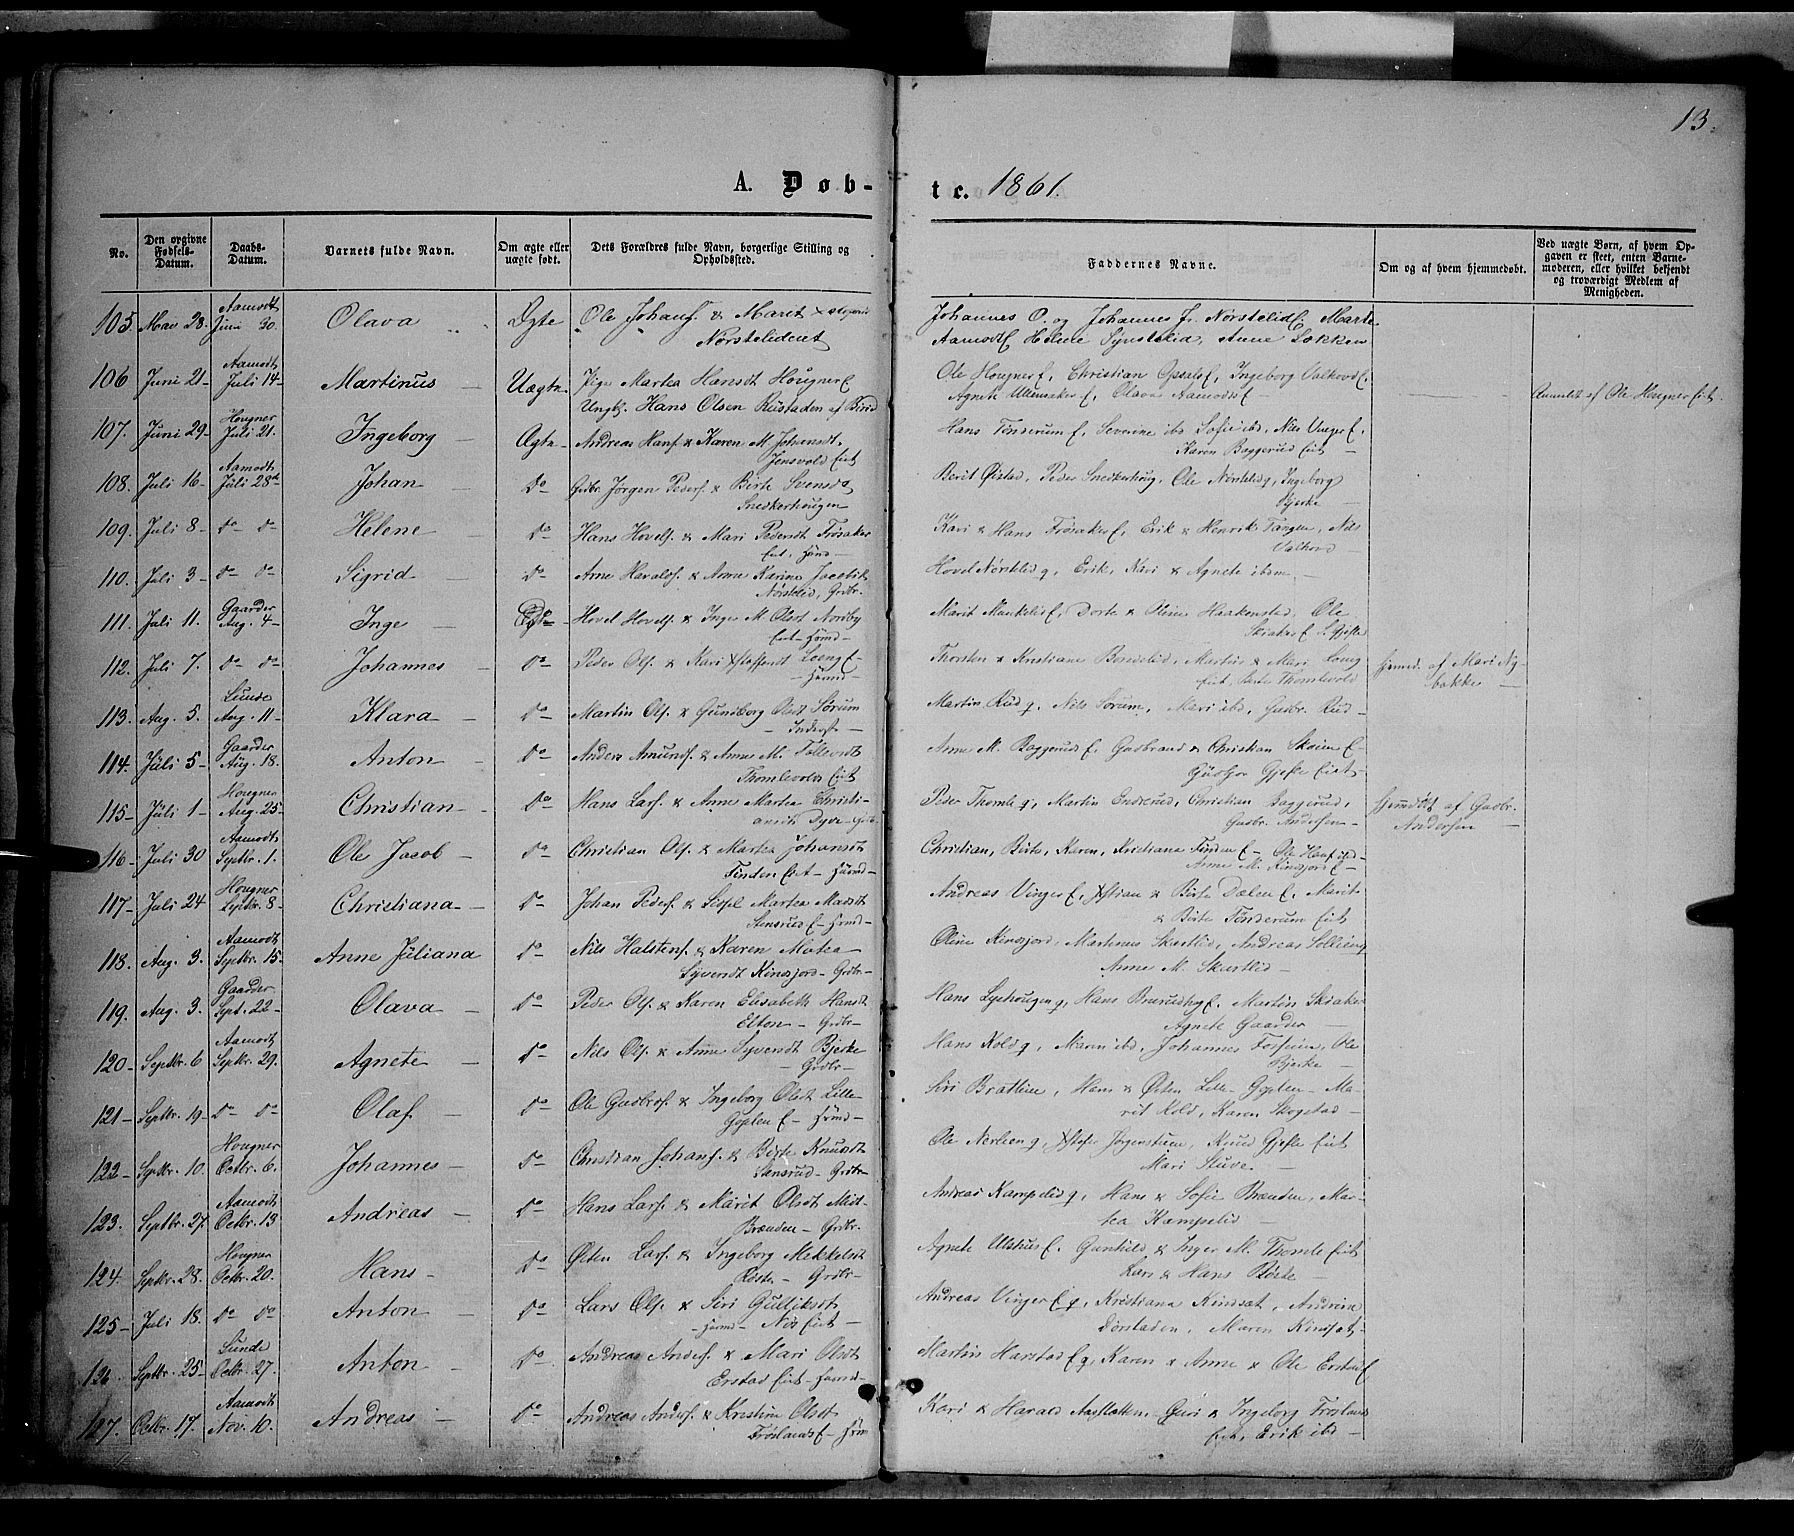 13.
A. Døb-
te. 1861.
No.
Den opgivne Fødsels-Datum.
Daabs-Datum.
Barnets fulde Navn.
Om ægte eller uægte født.
Dets Forældres fulde Navn, borgerlige Stilling og Opholdssted.
Faddernes Navne.
Om og af hvem hjemmedøbt.
Ved uægte Børn, af hvem Opgaven er skeet, enten Barnemoderen, eller hvilket bekjendt og troværdigt Medlem af Menigheden.
105. Mai 28. Aamodt Juni 30. Olava Ægte Ole Johans. & Marit
Nørstelideiet
Johannes O. og Johannes J. Nørstelid Marte
Aamodt Helene Synstelid, Anne Løkken
106 Juni 21 - Aamodt Juli 14 - Martinus - Uægte Pige Martea Hansdt Hougner
Ungk. Hans Olsen Rustaden af Birid
Ole Hougner, Christian Opsal, Ingeborg Valhovd
Agnete Ullensaker, Olava Aamodt
Anmeldt af Ole Hougner eiet.
107. Juni 29 - Hougner Juli 21. Ingeborg - Ægte Andreas Hans. & Karen M. Johansdt.
Jensvold eiet
Hans Tønderum, Severine ibd Sofie ibd, Nils Vinger
Karen Baggerud eiet
108. Juli 16 - Aamodt Juli 28de Johan - do Grdbr. Jørgen Peders. & Birte Svensdt
Snedkerhougen
Berit Øistad, Peder Snedkerhoug, Ole Nørstelid, Ingeborg
Bjerke
109. Juli 8 - do do Helene - do Hans Hovels. & Mari Pedersdt Frøsaker
eiet, Huusmd
Kari & Hans Frøsaker, Erik & Henrik Tangen, Nils
Valhovd
110. Juli 3 - do do Sigrid - do Arne Haralds. & Anne Karine
Nørstelid, Grdbr.
Hovel Nørstelid, Erik, Kari & Agnete ibdm.
111. Juli 11. Gaarder Aug. 4 - Inge - do Hovel Hovels. & Inger M. Olsdt Nordby
eiet - Huusmd
Marit Munkelid, Dorte & Oline Haakenstad, Ole
Skiaker Gjefle
112. Juli 7. do do Johannes - do Peder Ols. & Kari Loeng
Huusmd
Thorsten & Kristiane Bondelid, Martin & Mari Loeng
eiet, Berte Thomlevold
hjemmed. af Mari Ny-
bakke
113. Aug. 5. Lunde Aug. 11 - Klara - do Martin Ols. & Gunborg Olsdt Sørum
- Inderst -
Martin Rud, Nils Sorum, Mari ibd, Gudbr. Rud -
114. Juli 5 - Gaarder Aug. 18. Anton - do Anders Amunds. & Anne M. Tollevsdt
Thomlevolds eiet
Anne M. Baggerud, Gudbrand & Christian Skøien
Gjefle eiet
115 - Juli 1 - Hougner Aug. 25 - Christian - do Hans Lars. & Anne Martea Christi-
ansdt Dyve - Grdbr.
Peder Thomle, Martin Enderud, Christian Baggerud,
Gudbr. Andersen -
hjemdøbt af Gudbr.
Andersen
116 - Juli 30 Aamodt Septbr. 1. Ole Jacob - do Christian Ols. & Martea Johansdt
Finden eiet - Huusmd
Christian, Birte, Karen, Kristiana Finden - Ole Hans. ibd
Anne M. Kinsjord
117 - Juli 24 Hougner Septbr. 8 - Christiana - do Johan Peders. & Sissel Martea Madsdt
Stensrud - Huusmd
Andreas Vinger, Xstian & Birte Dælen, Marit
& Birte Tønderum eiet
118 - Aug. 3. Aamodt Septbr. 15 - Anne Juliana do Nils Halstens. & Karen Matea
Syversdt Kinsjord - Grdbr -
Oline Kinsjord, Martinus Skartlid, Andreas Sollien
Anne M. Skartlid -
119. Aug. 3. Gaarder Sept. 22 - Olava - do Peder Ols. & Karen Elisabeth Hansdt
Elton - Grdbr -
Hans Lyshougen, Hans, Martin Skiaker
Agnete Gaarder -
120 - Septbr. 6 Aamodt Septbr. 29. Agnete - do Nils Ols. & Anne Syversdt Bjerke
- Grdbr -
Hans Kold, Maren ibd, Johannes Fosheim, Ole
Bjerke -
121 - Septbr. 19 - do do Olaf. - do Ole Gudbrs. & Ingeborg Olsdt Lille-
Goplen - Huusmd
Siri Brattlien, Hans & Østen Lille-Goplen - Ma-
rit Kold, Karen Skogstad -
122 - Septbr. 10. Hougner Octbr. 6. Johannes - do Christian Johans. & Birte Knudsdt
Stensrud - Grdbr
Ole Nerlien, Jørgenstuen, Knud Gjefle eiet
Mari Stuve. -
123. Septbr. 27. Aamodt Octbr. 13 Andreas - do Hans Lars. & Marit Olsdt Midt-
Brænden - Grdbr.
Andreas Kampelid, Hans & Sofie Brænden, Mar-
tea Kampelid -
124. Septbr. 28. Hougner Octbr. 20. Hans - do Østen Lars. & Ingeborg Mikkelsdt
Roste - Grdbr -
Agnete Ulshus, Gunhild & Inger M. Thomle eiet
Lars & Hans Roste -
125 - Juli 18. do do Anton - do Lars Ols. & Siri Gulliksdt
- Huusmd - eiet -
Andreas Vinger, Kristiana Kindsæt, Andrine
Dørstaden, Maren Kindsæt -
126. Septbr. 25 - Lunde Octbr. 27. Anton - do Andreas Anders. & Mari Olsdt
Erstad eiet - Huusmd -
Martin Harstad, Karen & Anne & Ole Erstad
127. Octbr. 17. Aamodt Nov. 10. Andreas - do Andreas Anders. & Kristine Olsdt
Frøsland - Huusmd
Kari & Harald Aasfletten - Guri & Ingeborg Frøslands
eiet, Erik ibd -